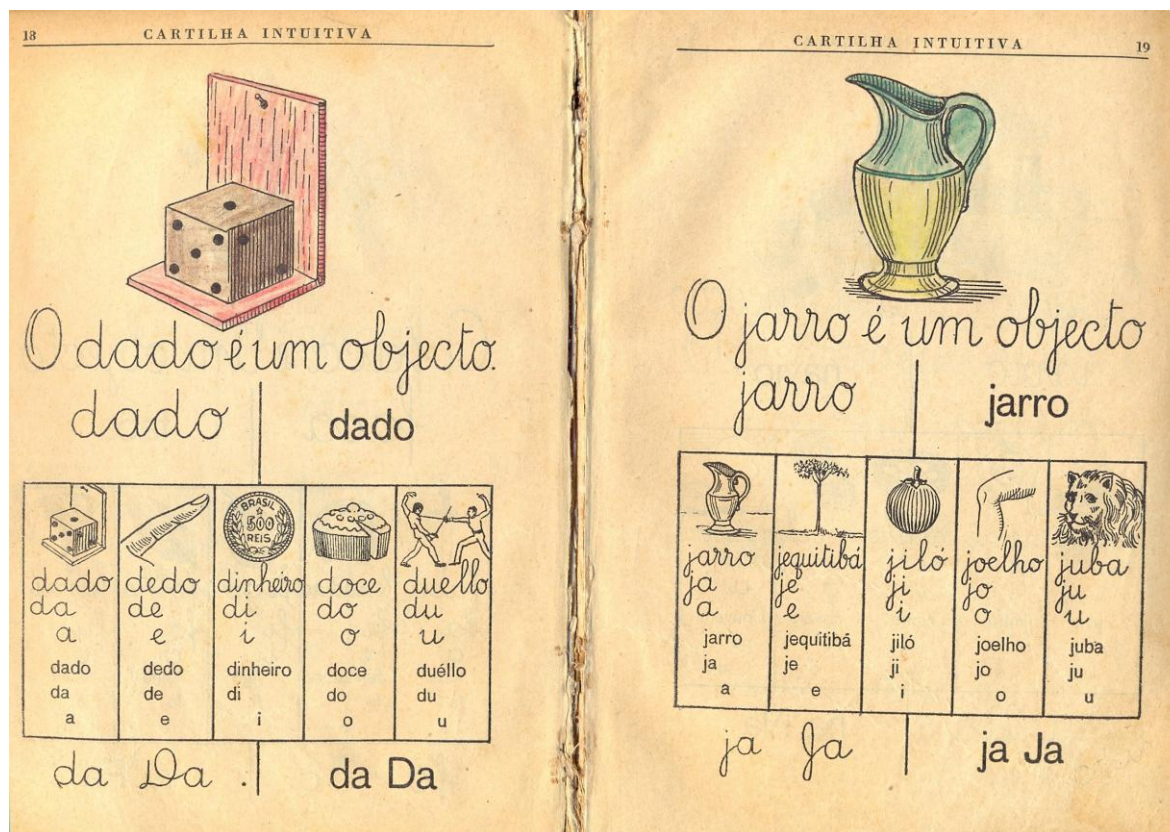 18 CARTILHA INTUITIVA
O dado é um objecto.
dado dado
BRASIL
500
REIS
dado dedo dinheiro doce duello
da de di do du
a e i o u
dado dedo dinheiro doce duéllo
da de di do du
a e i o u
da Da . da Da
CARTILHA INTUITIVA 19
O jarro é um objecto
jarro jarro
jarro jequitibá jiló joelho juba
ja je ji jo ju
a e i o u
jarro jequitibá jiló joelho juba
ja je ji jo ju
a e i o u
ja Ja ja Ja